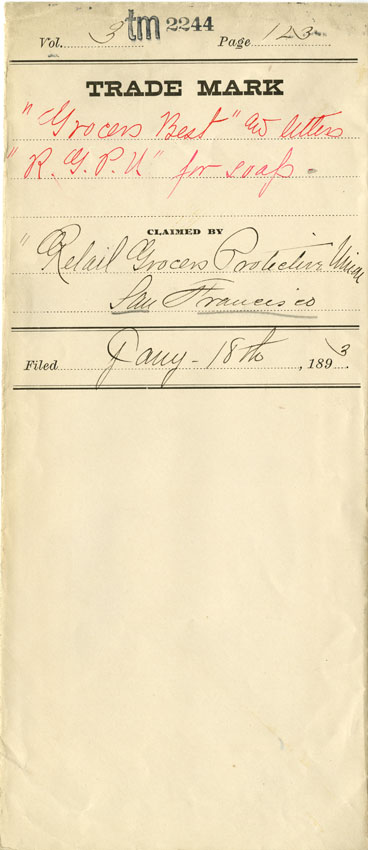 Vol. 3 tm 2244 Page 123
TRADE MARK
"Grocers Best" and letters
"R. G. P. U" for soap.
CLAIMED BY
"Retail Grocers Protective Union
San Francisco
Filed Jany - 18th, 1893.